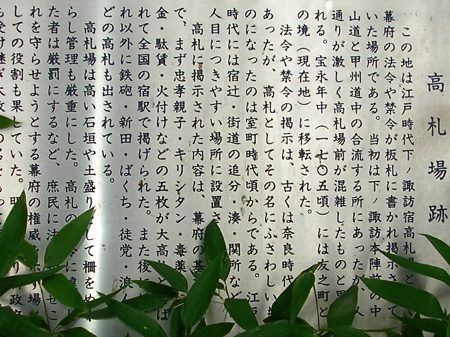 高札場跡
この地は江戸時代下ノ諏訪宿高札場とい
幕府の法令や禁令が板札に書かれ掲示さて
いた場所である。当初は下ノ諏訪本陣前の中
山道と甲州道中の合流する所にあったが、人
通りが激しく高札場前が混雑したものと思
れる。宝永年中(一七〇五頃)には友之町と
の境(現在地)に移転された。
法令や禁令の掲示は、古くは奈良時代
あったが、高札としてその名にふさわしい
のになったのは室町時代頃からである。江戸
時代には宿辻・街道の追分・湊・関所な
人目につきやすい場所に設置さ
高札に掲示された内容は、幕府の基
で、まず忠孝親子・キリシタン・毒薬
金・駄賃・火付けなどの五枚が大高
れて全国の宿駅で掲げられた。また後
れ以外に鉄砲 新田・ばち 徒党 浪
どの高札も出されている。
高札場は高い石垣や土盛り して柵をめ
らし管理も厳重にした。高札の
た者は厳罰にするなど、庶民に法
れを守らせようとする幕府の権威 場
しての役割も果